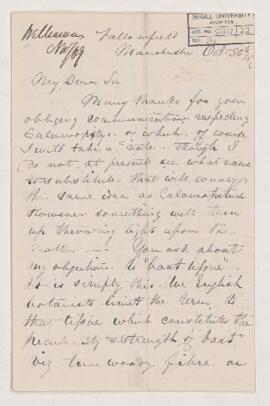 Williamson
Nov/69
McGILL UNIVERSITY
ARCHIVES
ACC. NO.
REF.
Fallowfield
Manchester Oct. 30th
My Dear Sir
Many thanks for your
obliging communication respecting
Calamopitys. of which of course
I will take a note - though I
do not, at present see what name
to substitute that will convey
the same idea as Calamopitus
However something will turn
up throwing light upon the
matter — You ask about
my objection to "bast tissue" -
It is simply this. We English
botanists limit the term to
that tissue which constitutes the
peculiarity & strength of "bast"
viz true woody fibre or